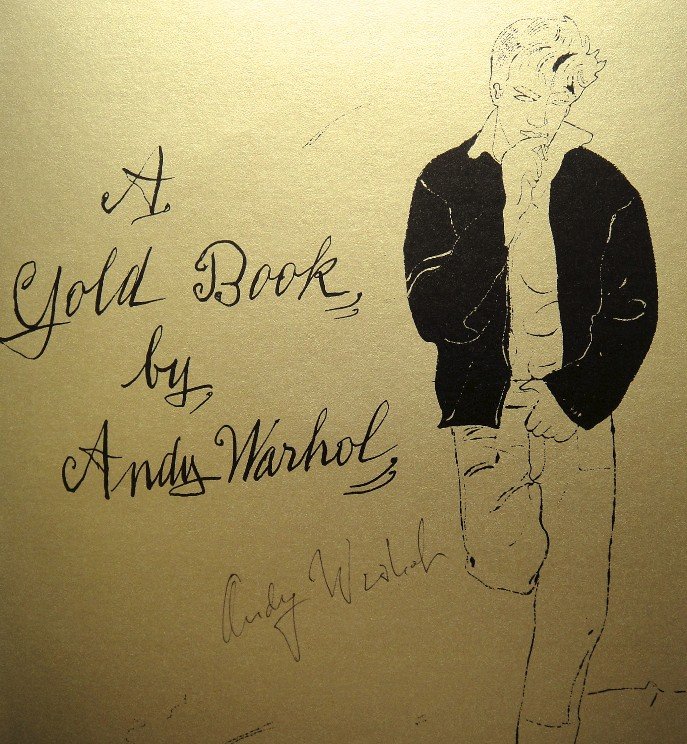 A
Gold Book,
by
Andy Warhol,
Andy Warhol